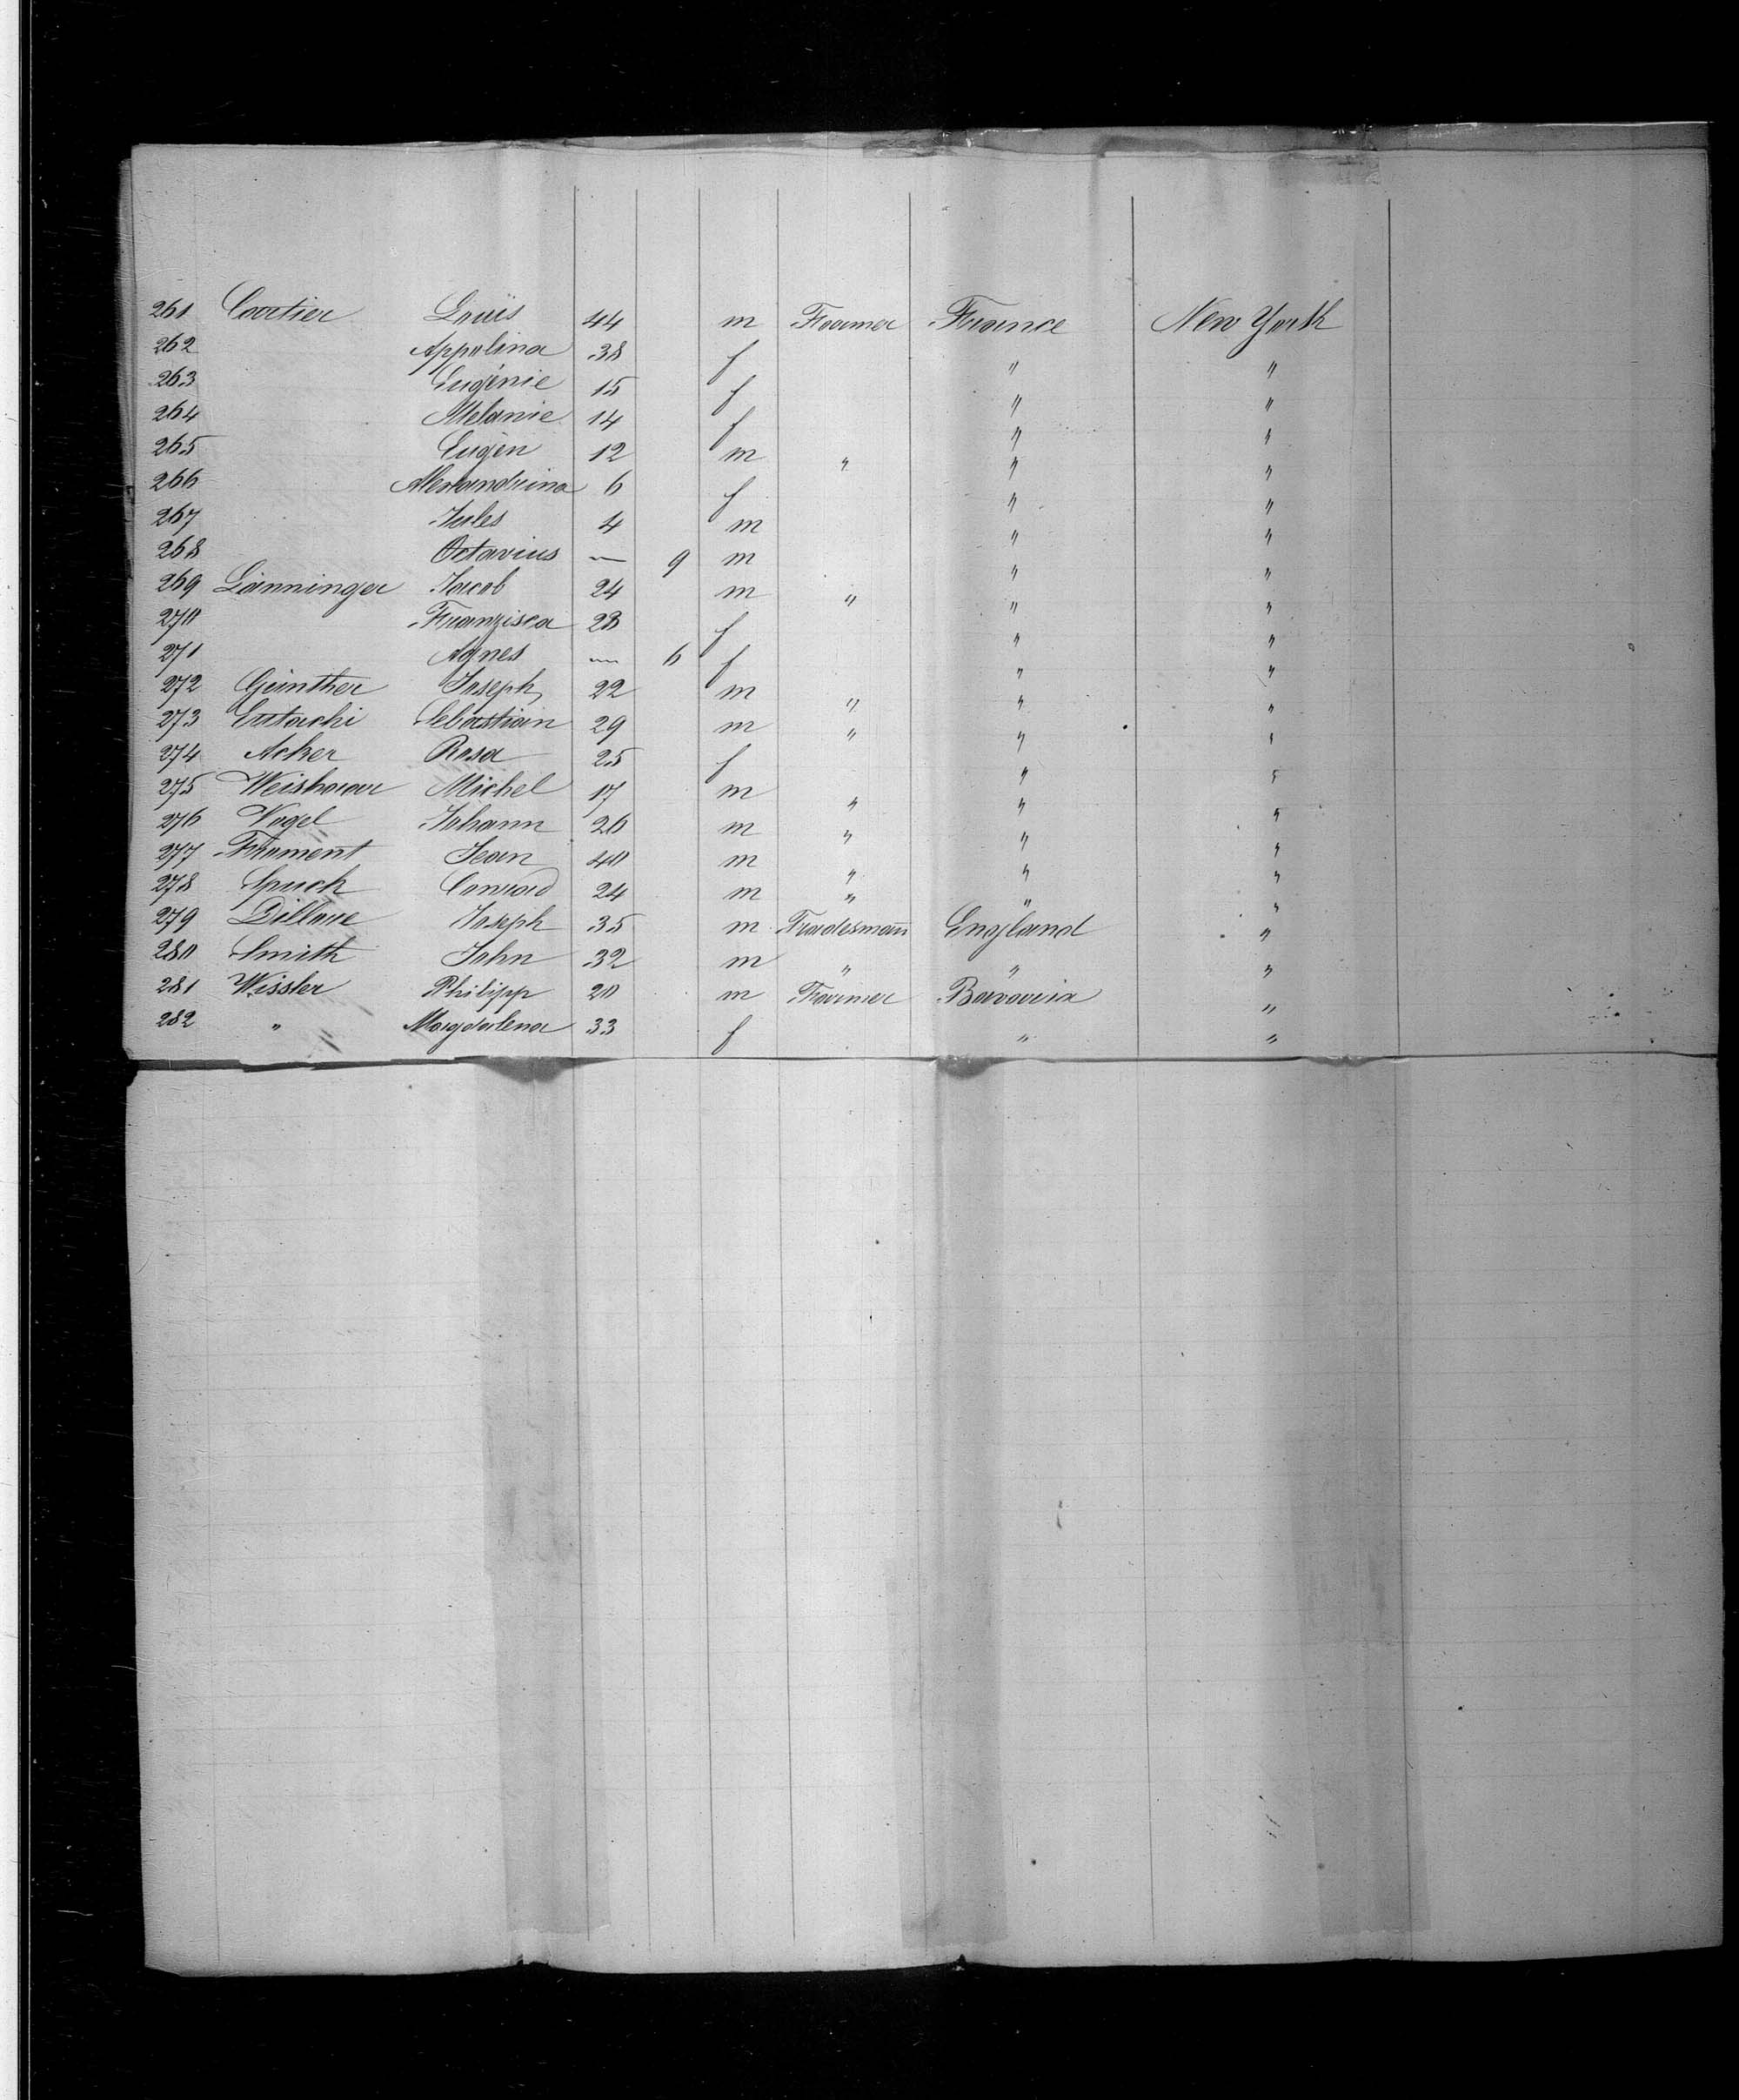 261 Cartier Louis 44 m Farmer France New York
262 Appolina 38 f " "
263 Eugénie 15 f " "
264 Melanie 14 f " "
265 Eugèn 12 m " " "
266 Alexandrina 6 f " "
267 Jules 4 m " "
268 Octavius — 9 m " "
269 Länninger Jacob 24 m " " "
270 Franzisca 28 f " "
271 Agnes — 6 f " "
272 Günther Joseph 22 m " " "
273 Eustachi Sebastian 29 m " " "
274 Acker Rosa 25 f " "
275 Michel 17 m " " "
276 Vogel Johann 26 m " " "
277 Froment Jean 40 m " " "
278 Spuck Conrad 24 m " " "
279 Joseph 35 m Tradesman England "
280 Smith John 32 m " " "
281 Wissler Philipp 20 m Farmer Bavaria "
282 " Magdalena 33 f " "